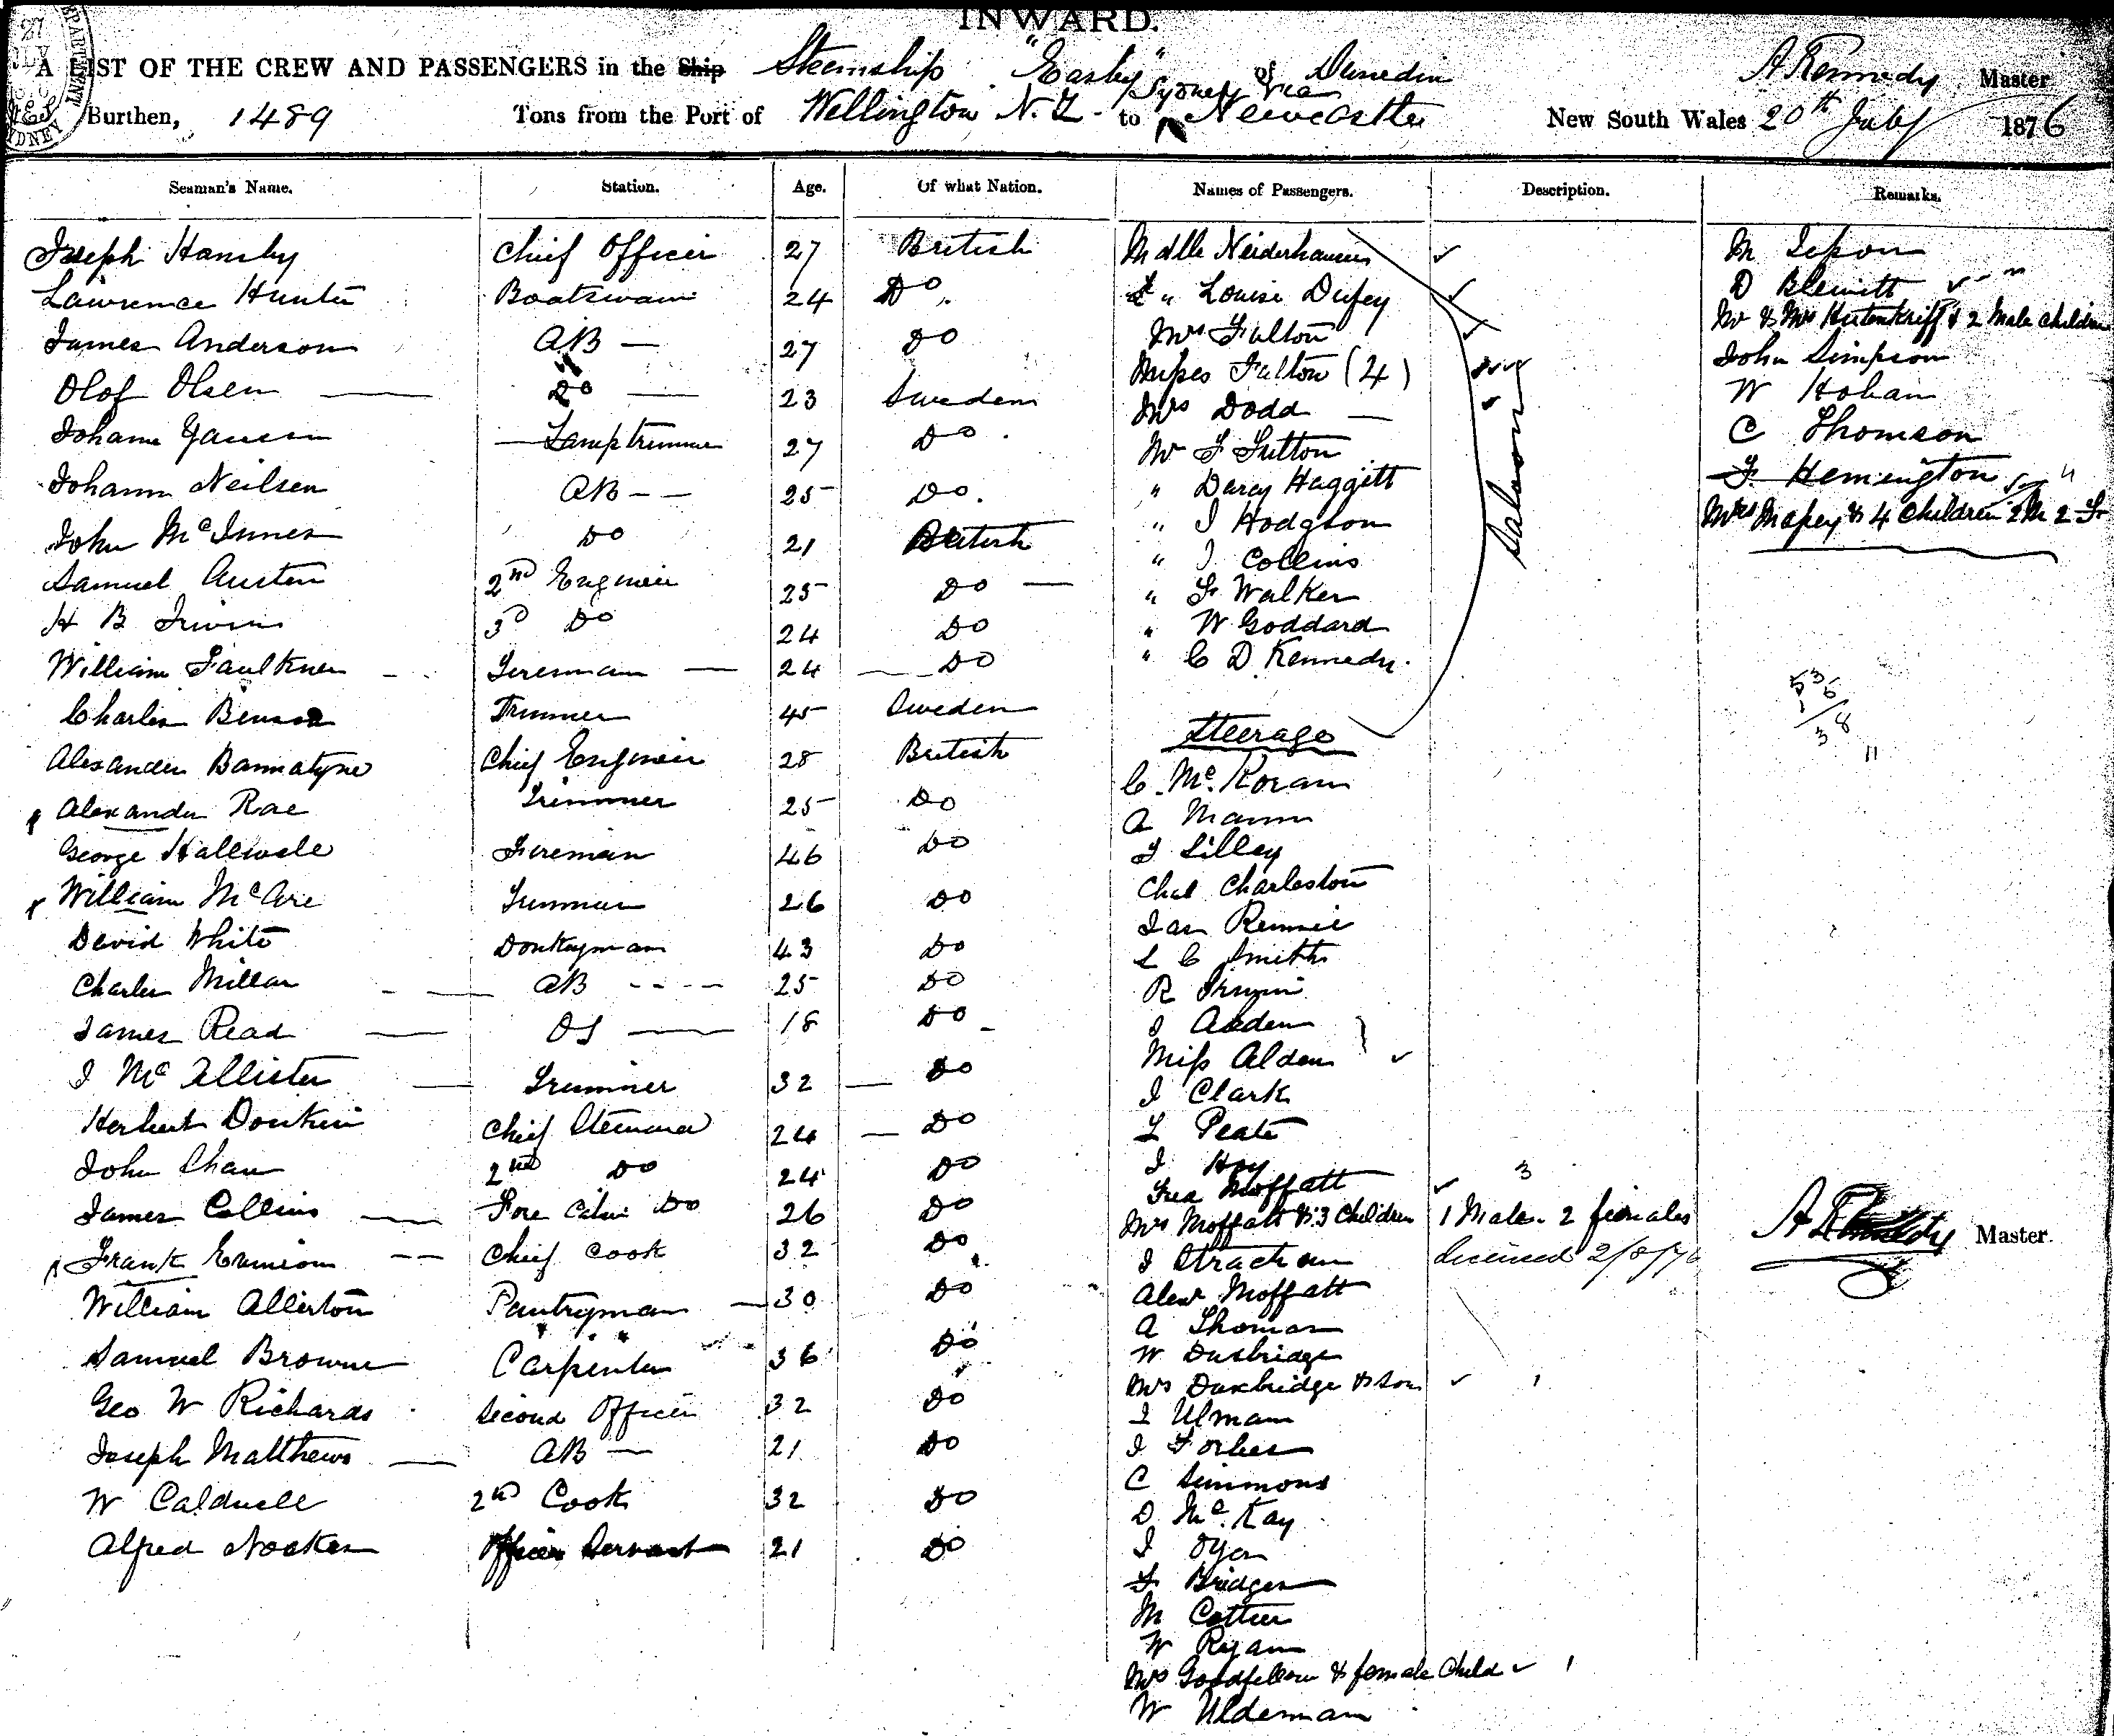 INWARD.
A LIST OF THE CREW AND PASSENGERS in the Ship Steamship "Easby" of Dunedin A Kennedy Master
Sydney via
Burthen, 1489 Tons from the Port of Wellington N.Z. to Newcastle New South Wales 20th July 1876
Seaman's Name. Station. Age. Of what Nation. Names of Passengers. Description. Remarks.
Joseph Hansby Chief Officer 27 British
Lawrence Hunter Boatswain 24 Do
James Anderson AB 27 Do
Olof Olsen Do 23 Sweden
Johann Jansen Lamptrimmer 27 Do
Johann Neilsen AB 25 Do.
John McInnes Do 21 British
Samuel Austin 2nd Engineer 25 Do
H B Irwin 3d Do 24 Do
William Faulkner Fireman 24 Do
Charles Benson Trimmer 45 Sweden
Alexander Bannatyne Chief Engineer 28 British
Alexander Rae Trimmer 25 Do
George Halliwell Fireman 46 Do
William McAre Trimmer 26 Do
David White Donkeyman 43 Do
Charles Millar AB 25 Do
James Read OS 18 Do
J McAllister Trimmer 32 Do
Herbert Donkin Chief Steward 24 Do
John Shaw 2nd Do 24 Do
James Collins Fore Cabin Do 26 Do
Frank Ermison Chief Cook 32 Do
William Allerton Pantryman 30 Do
Samuel Browne Carpenter 36 Do
Geo W Richards Second Officer 32 Do
Joseph Matthews AB 21 Do
W Caldwell 2nd Cook 32 Do
Alfred Noakes Officers Servant 21 Do
Mdlle Neiderhausen
" Louise Dufey
Mrs Fulton
Misses Fulton (4)
Mrs Dodd
Mr F Sutton
" Darcy Haggitt
" J Hodgson
" J Collins
" F Walker
" W Goddard
" C D Kennedy.
Saloon
Steerage
C. McKoran
A Mann
J Lilley
Chas Charleston
Jas Rennie
L C Smith
R Irwin
J Alden
Miss Alden
J Clark
L Peate
J Hay
Fred Moffatt 3
Mrs Moffatt & 3 Children 1 Male. 2 females
J Strachan
Alexr Moffatt
A Thomas
W Duxbridge
Mrs Duxbridge & Son 1
J Ulman
J Forbes
C Simmons
D McKay
J Dyer
F Bridges
M Cotter
W Ryan
Mrs Goodfellow & female Child 1
W Alderman
D Blewitt
Mr & Mrs & 2 Male children
John Simpson
W Hohan
C Thomson
F Hemington
Mrs Massey & 4 Children 2 M 2 F
A Kennedy Master